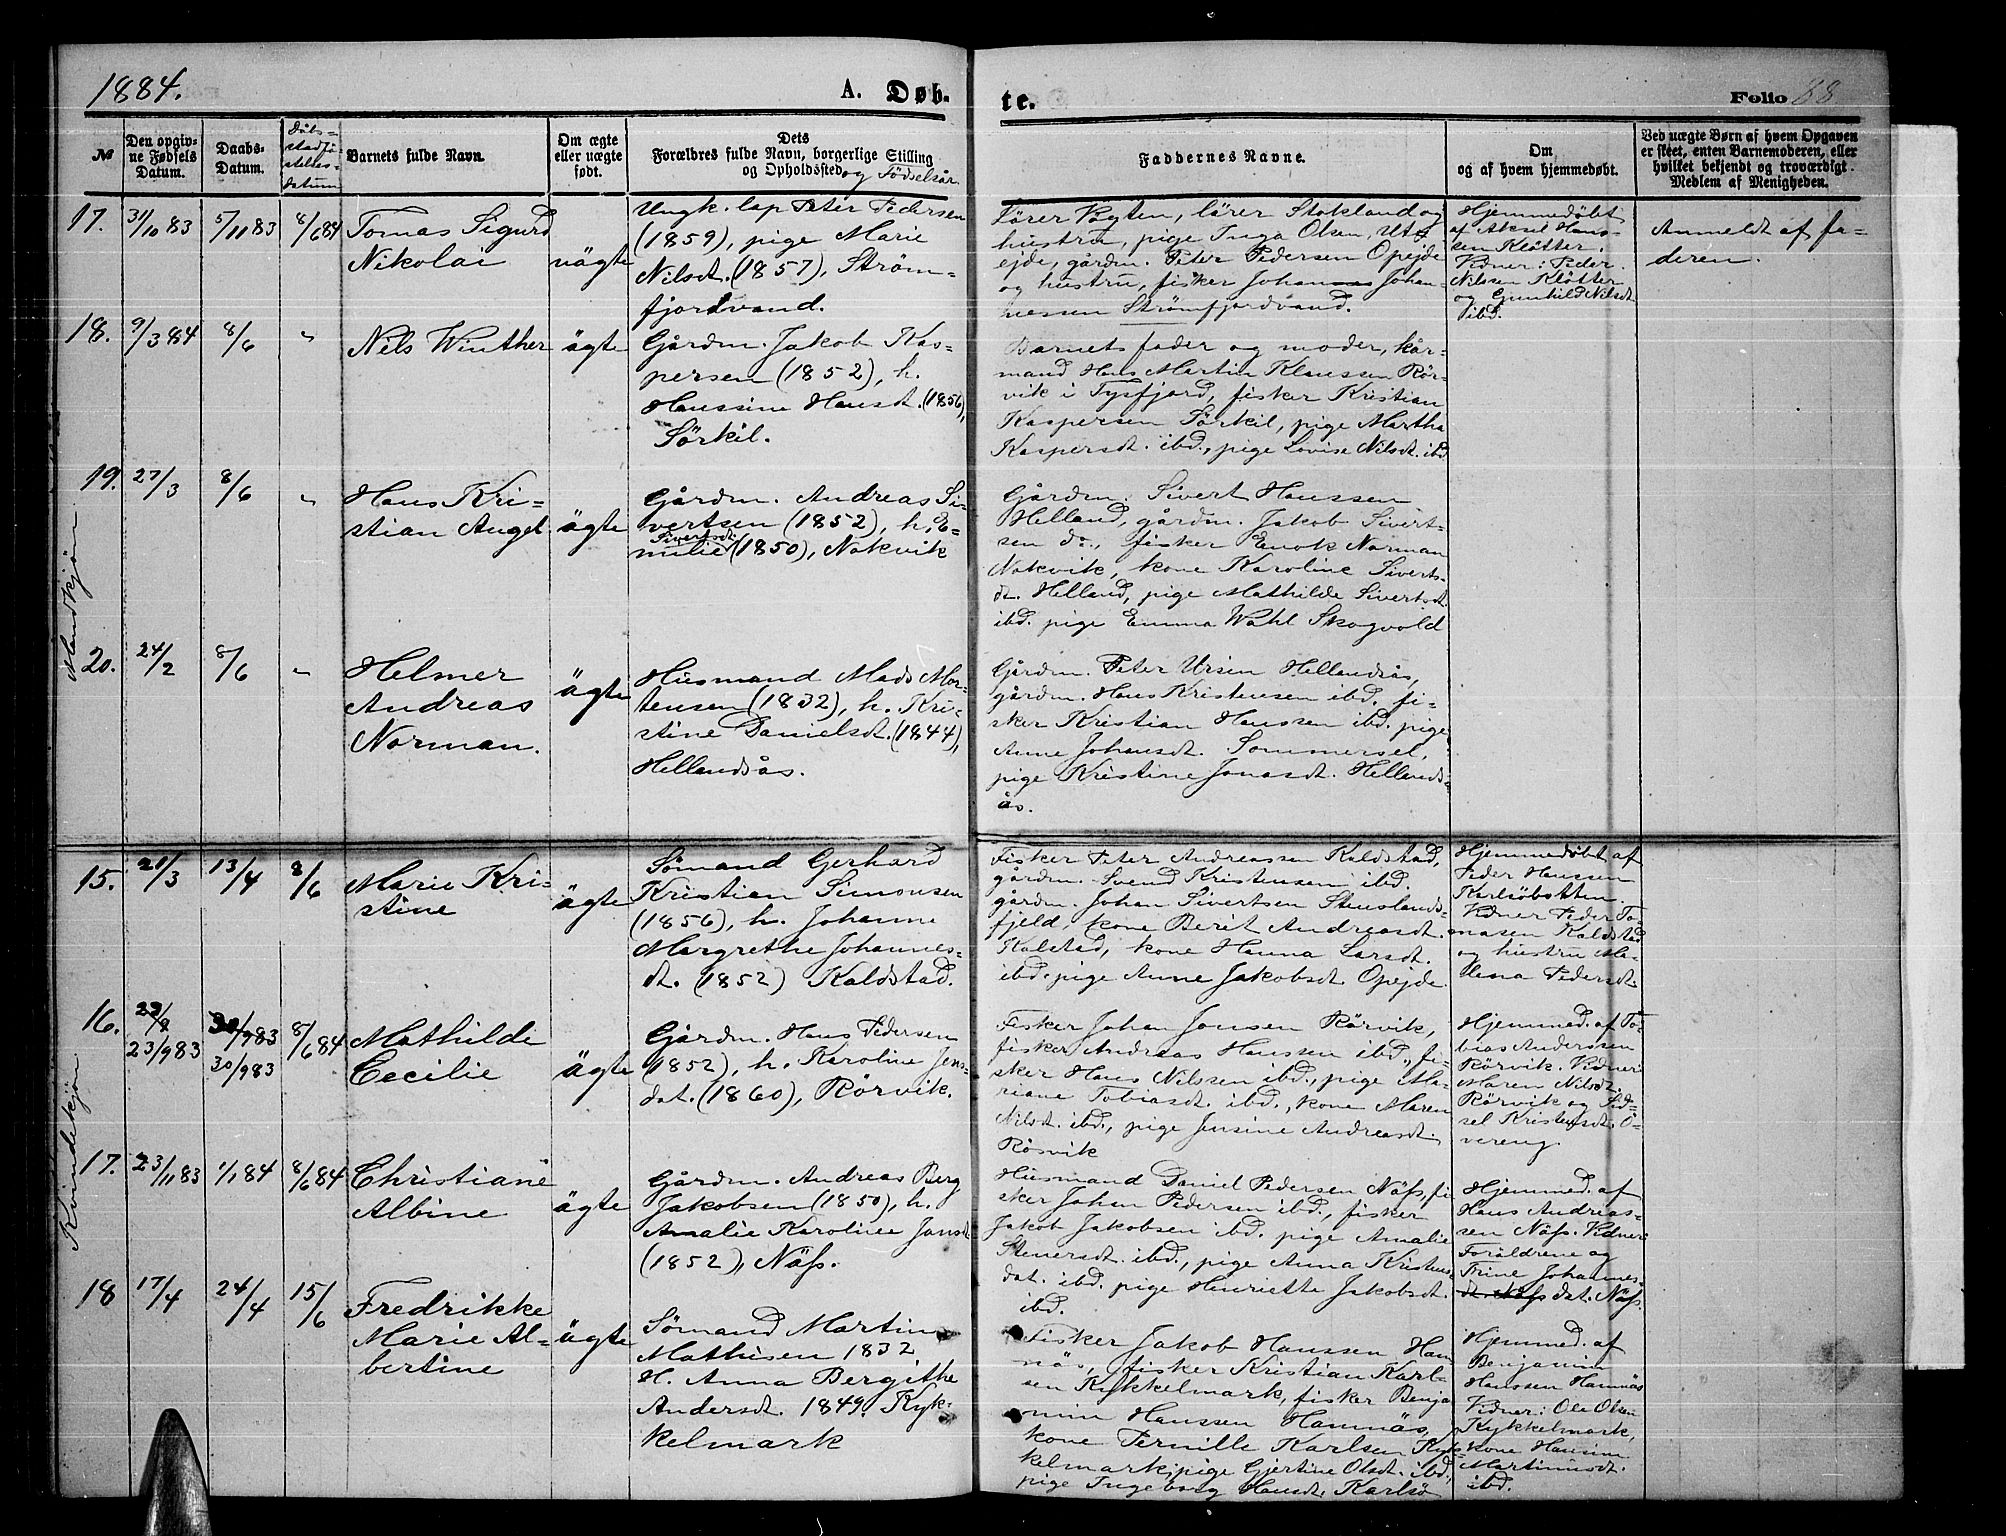 1884.
A. Døb.
te.
Folio 88
№
Den opgiv-
ne Fødsels
Datum.
Daabs-
Datum.
Dåbs-
stadfæ-
stelses-
datum
Barnets fulde Navn.
Om ægte
eller uægte
født.
Dets
Forældres fulde Navn, borgerlige Stilling
og Opholdsted og Födselsår.
Faddernes Navne.
Om
og af hvem hjemmedøbt.
Ved uægte Børn af hvem Opgaven
er skeet, enten Barnemoderen, eller
hvilket bekjendt og troværdigt
Medlem af Menigheden.
Mandkjön
17.
31/10 83
5/11 83
8/6 84
Tomas Sigurd
Nikolai
uägte
Ungk. lap Peter Pedersen
(1859), pige Marie
Nilsdt. (1857), Ström-
fjordvand.
Lärer Vogten, lärer Stokland og
hustru, pige Inga Olsen, Ut
ejde, gårdm. Peter Pedersen Opejde
og hustru, fisker Johannes Johan-
nessen Strömfjordvand.
Hjemmedöbt
af Aksel Hans-
sen Klötter.
Vidner: Peder
Nilssen Klötter
og Gunhild Nilsdt.
ibd.
Anmeldt af fa-
deren.
18.
9/3 84
8/6
"
Nils Winther
ägte
Gårdm. Jakob Kas-
persen (1852), h.
Hanssine Hansdt. (1856),
Sörkil.
Barnets fader og moder, kår-
mand Hans Martin Klaussen Rör-
vik i Tysfjord, fisker Kristian
Kaspersen Sörkil, pige Martha
Kaspersdt. ibd., pige Lovise Nilsdt. ibd
19.
27/3
8/6
"
Hans Kri-
stian Angel
ägte
Gårdm. Andreas Si-
vertsen (1852), h. E-
milie Sivertsdt. (1850), Nakvik
Gårdm. Sivert Hanssen
Helland, gårdm. Jakob Sivert-
sen do., fisker Enok Norman
Nakvik, kone Karoline Siverts-
dt. Helland, pige Mathilde Sivertsdt.
ibd. pige Emma Wahl Skogvold
20.
24/2
8/6
"
Helmer
Andreas
Norman.
ägte
Husmand Mads Mor-
tensen (1832), h. Kri-
stine Danielsdt. (1844),
Hellandsås.
Gårdm. Peter Ursin Hellandsås,
gårdm. Hans Kristensen ibd. fi-
sker Kristian Hanssen ibd. pige
Anne Johansdt. Sommersel,
pige Kristine Jonasdt. Hellands-
ås.
Kvindekjön
15.
21/3
13/4
8/6
Marie Kri-
stine
ägte
Sömand Gerhard
Kristian Simonsen
(1856), h. Johanne
Margrethe Johannes-
dt. (1852) Kaldstad.
Fisker Peter Andreassen Kaldstad,
gårdm. Svend Kristensen ibd.
gårdm. Johan Sivertsen Stenslands-
fjeld, kone Berit Andreasdt.
Kalstad, kone Hanna Larsdt.
ibd. pige Anne Jakobsdt. Opejde
Hjemmedöbt af
Peder Hanssen
Karlsöbotten.
Vidner Peder To-
masen Kaldstad
og hustru Ma-
lena Pedersdt.
16.
23/9
23/9 83
30/9 83
30/9 83
8/6 84
Mathilde
Cecilie
ägte
Gårdm. Hans Pedersen
(1852), h. Karoline Jens-
dat. (1860), Rörvik.
Fisker Johan Jonsen Rörvik,
fisker Andreas Hanssen ibd., fi-
sker Hans Nilssen ibd., pige Ma-
riane Tobiasdt. ibd., kone Maren
Nilsdt. ibd., pige Jensine Andreasdt.
Rösvik
Hjemmed. af To-
bias Anderssen
Rörvik. Vidner:
Maren Nilsdt.
Rörvik og Sid-
sel Kristensdt. Ö-
vereng.
17.
23/11 83
1/1 84
8/6 84
Christiane
Albine
ägte
Gårdm. Andreas Berg
Jakobsen (1850), h.
Amalie Karoline Jansdt
(1852), Näfs.
Husmand Daniel Pedersen Näfs, fi
sker Johan Pedersen ibd., fisker
Jakob Jakobsen ibd. pige Amalie
Stenersdt. ibd., pige Anna Kristens-
dat. ibd. pige Henriette Jakobsdt.
ibd.
Hjemmed. af
Hans Andreas-
sen Näfs. Vidner:
Foräldrene og
Trine Johannes-
dt. Näfs dat. Näfs.
18
17/4
24/4
15/6
Fredrikke
Marie Al-
bertine
ägte
Sömand Martin
Mathisen 1832
H. Anna Bergithe
Andersdt. 1849. Kyk-
kelmark
Fisker Jakob Hanssen Ham
näs, fisker Kristian Karl-
sen Kykkelmark, fisker Benja
min Hanssen Hamnäs,
kone Pernille Karlsen Kyk
kelmark, pige Gjertine Olsdt. ibd,
pige Ingeborg Hansdt. Karlsö
Hjemmed. af
Benjamin
Hanssen Hamnäs
Vidner: Ole Olsen
Kykkelmark,
kone Hansine
Martinusdt.
ibd.